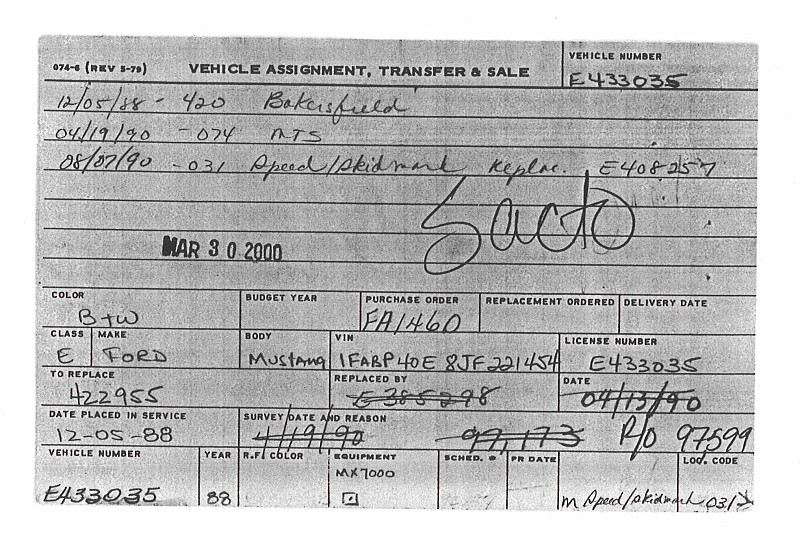 074-6 (REV 5-79) VEHICLE ASSIGNMENT, TRANSFER & SALE VEHICLE NUMBER
E433035
12/05/88 - 420 Bakersfield
04/19/90 - 074 MTS
08/07/90 - 031 Speed/Skidmark Replac. E408257
Sacto
MAR 30 2000
COLOR BUDGET YEAR PURCHASE ORDER REPLACEMENT ORDERED DELIVERY DATE
B+W FA1460
CLASS MAKE BODY VIN LICENSE NUMBER
E FORD Mustang 1FABP40E8JF221454 E433035
TO REPLACE REPLACED BY DATE
422955 E385298 04/13/90
DATE PLACED IN SERVICE SURVEY DATE AND REASON
12-05-88 4/19/90 99,173 R/O 97599
VEHICLE NUMBER YEAR R.F. COLOR EQUIPMENT SCHED. # PR DATE LOC. CODE
MX7000
E433035 88 M Speed/Skidmark 031